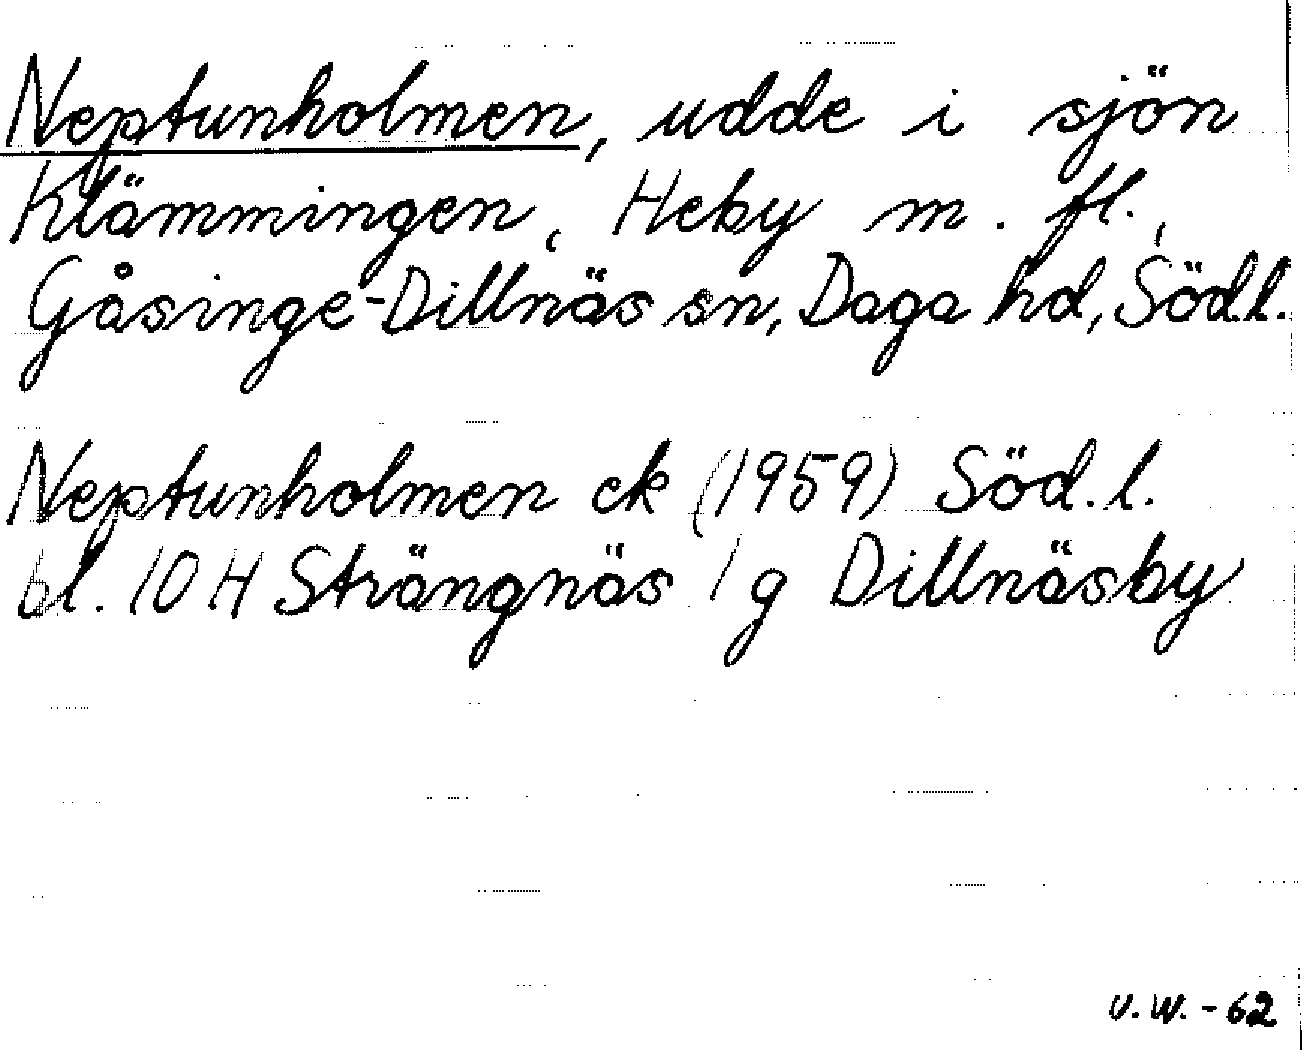 Neptunholmen, udde i sjön
Klämmingen, Heby m. fl.,
Gåsinge-Dillnäs sn, Daga hd, Söd.l.
Neptunholmen ek (1959) Söd.l.
bl. 10 H Strängnäs 1 g Dillnäsby
U.W. - 62